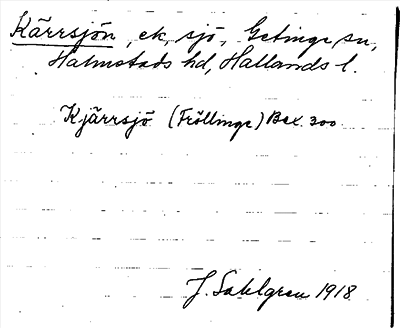 Kärrsjön, ek, sjö, Getinge sn,
Halmstads hd, Hallands l.
Kjärrsjö (Fröllinge) Bex. 300.
J. Sahlgren 1918